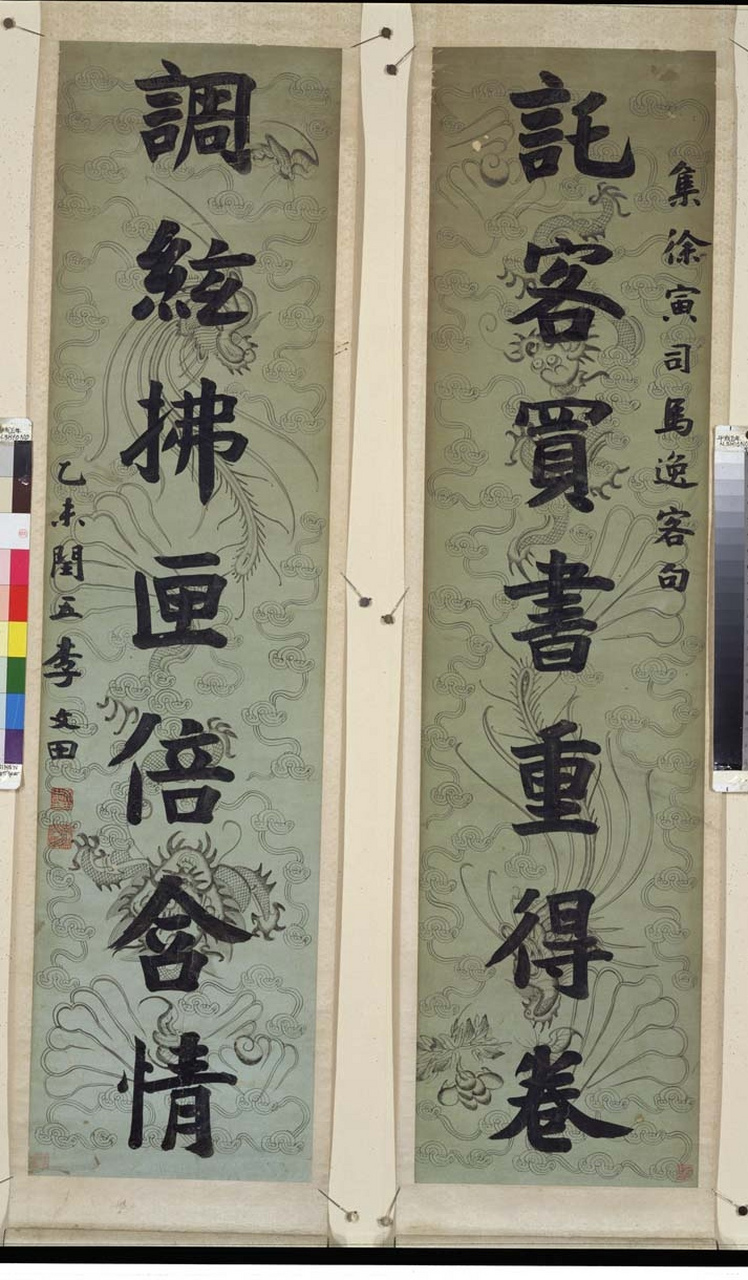 集徐寅司馬逸客句
託客買書重得卷
調絃拂匣倍含情
乙未閏五李文田